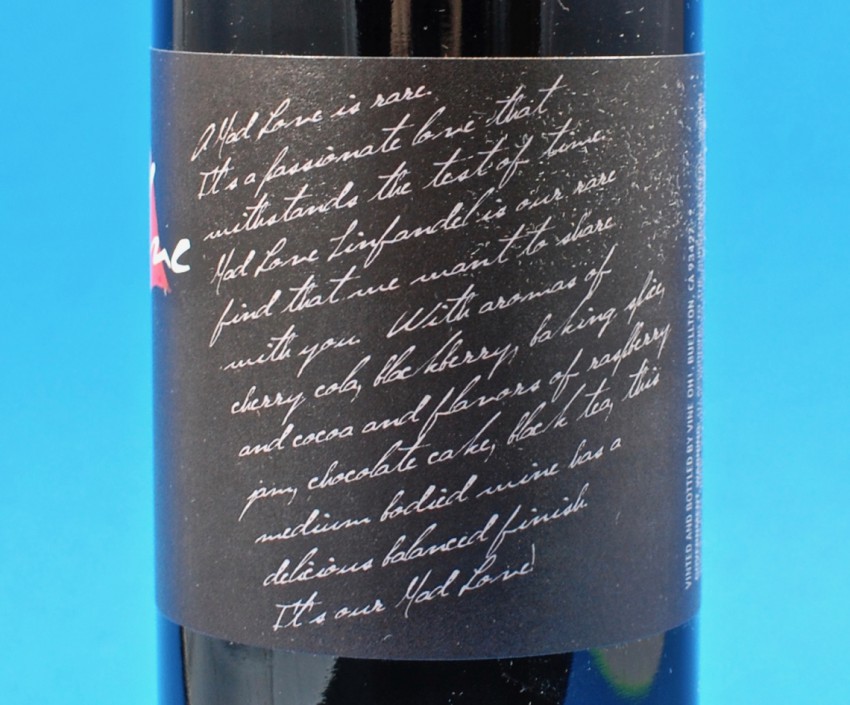 A Mad Love is rare.
It's a passionate love that
withstands the test of time.
Mad Love Zinfandel is our rare
find that we want to share
with you. With aromas of
cherry cola, blackberry, baking spice,
and cocoa and flavors of raspberry
jam, chocolate cake, black tea, this
medium bodied wine has a
delicious balanced finish.
It's our Mad Love!
VINTED AND BOTTLED BY VINE OH!, BUELLTON, CA 93427
GOVERNMENT WARNING: